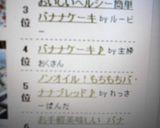 3位 おいしいヘルシー簡単
バナナケーキ by ルービー
4位 バナナケーキ♪ by 主婦
おくさん
5位 ノンオイル!もちもちバ
ナナブレッド♪ by れっさ
ーぱんだ
お手軽美味しい バナ